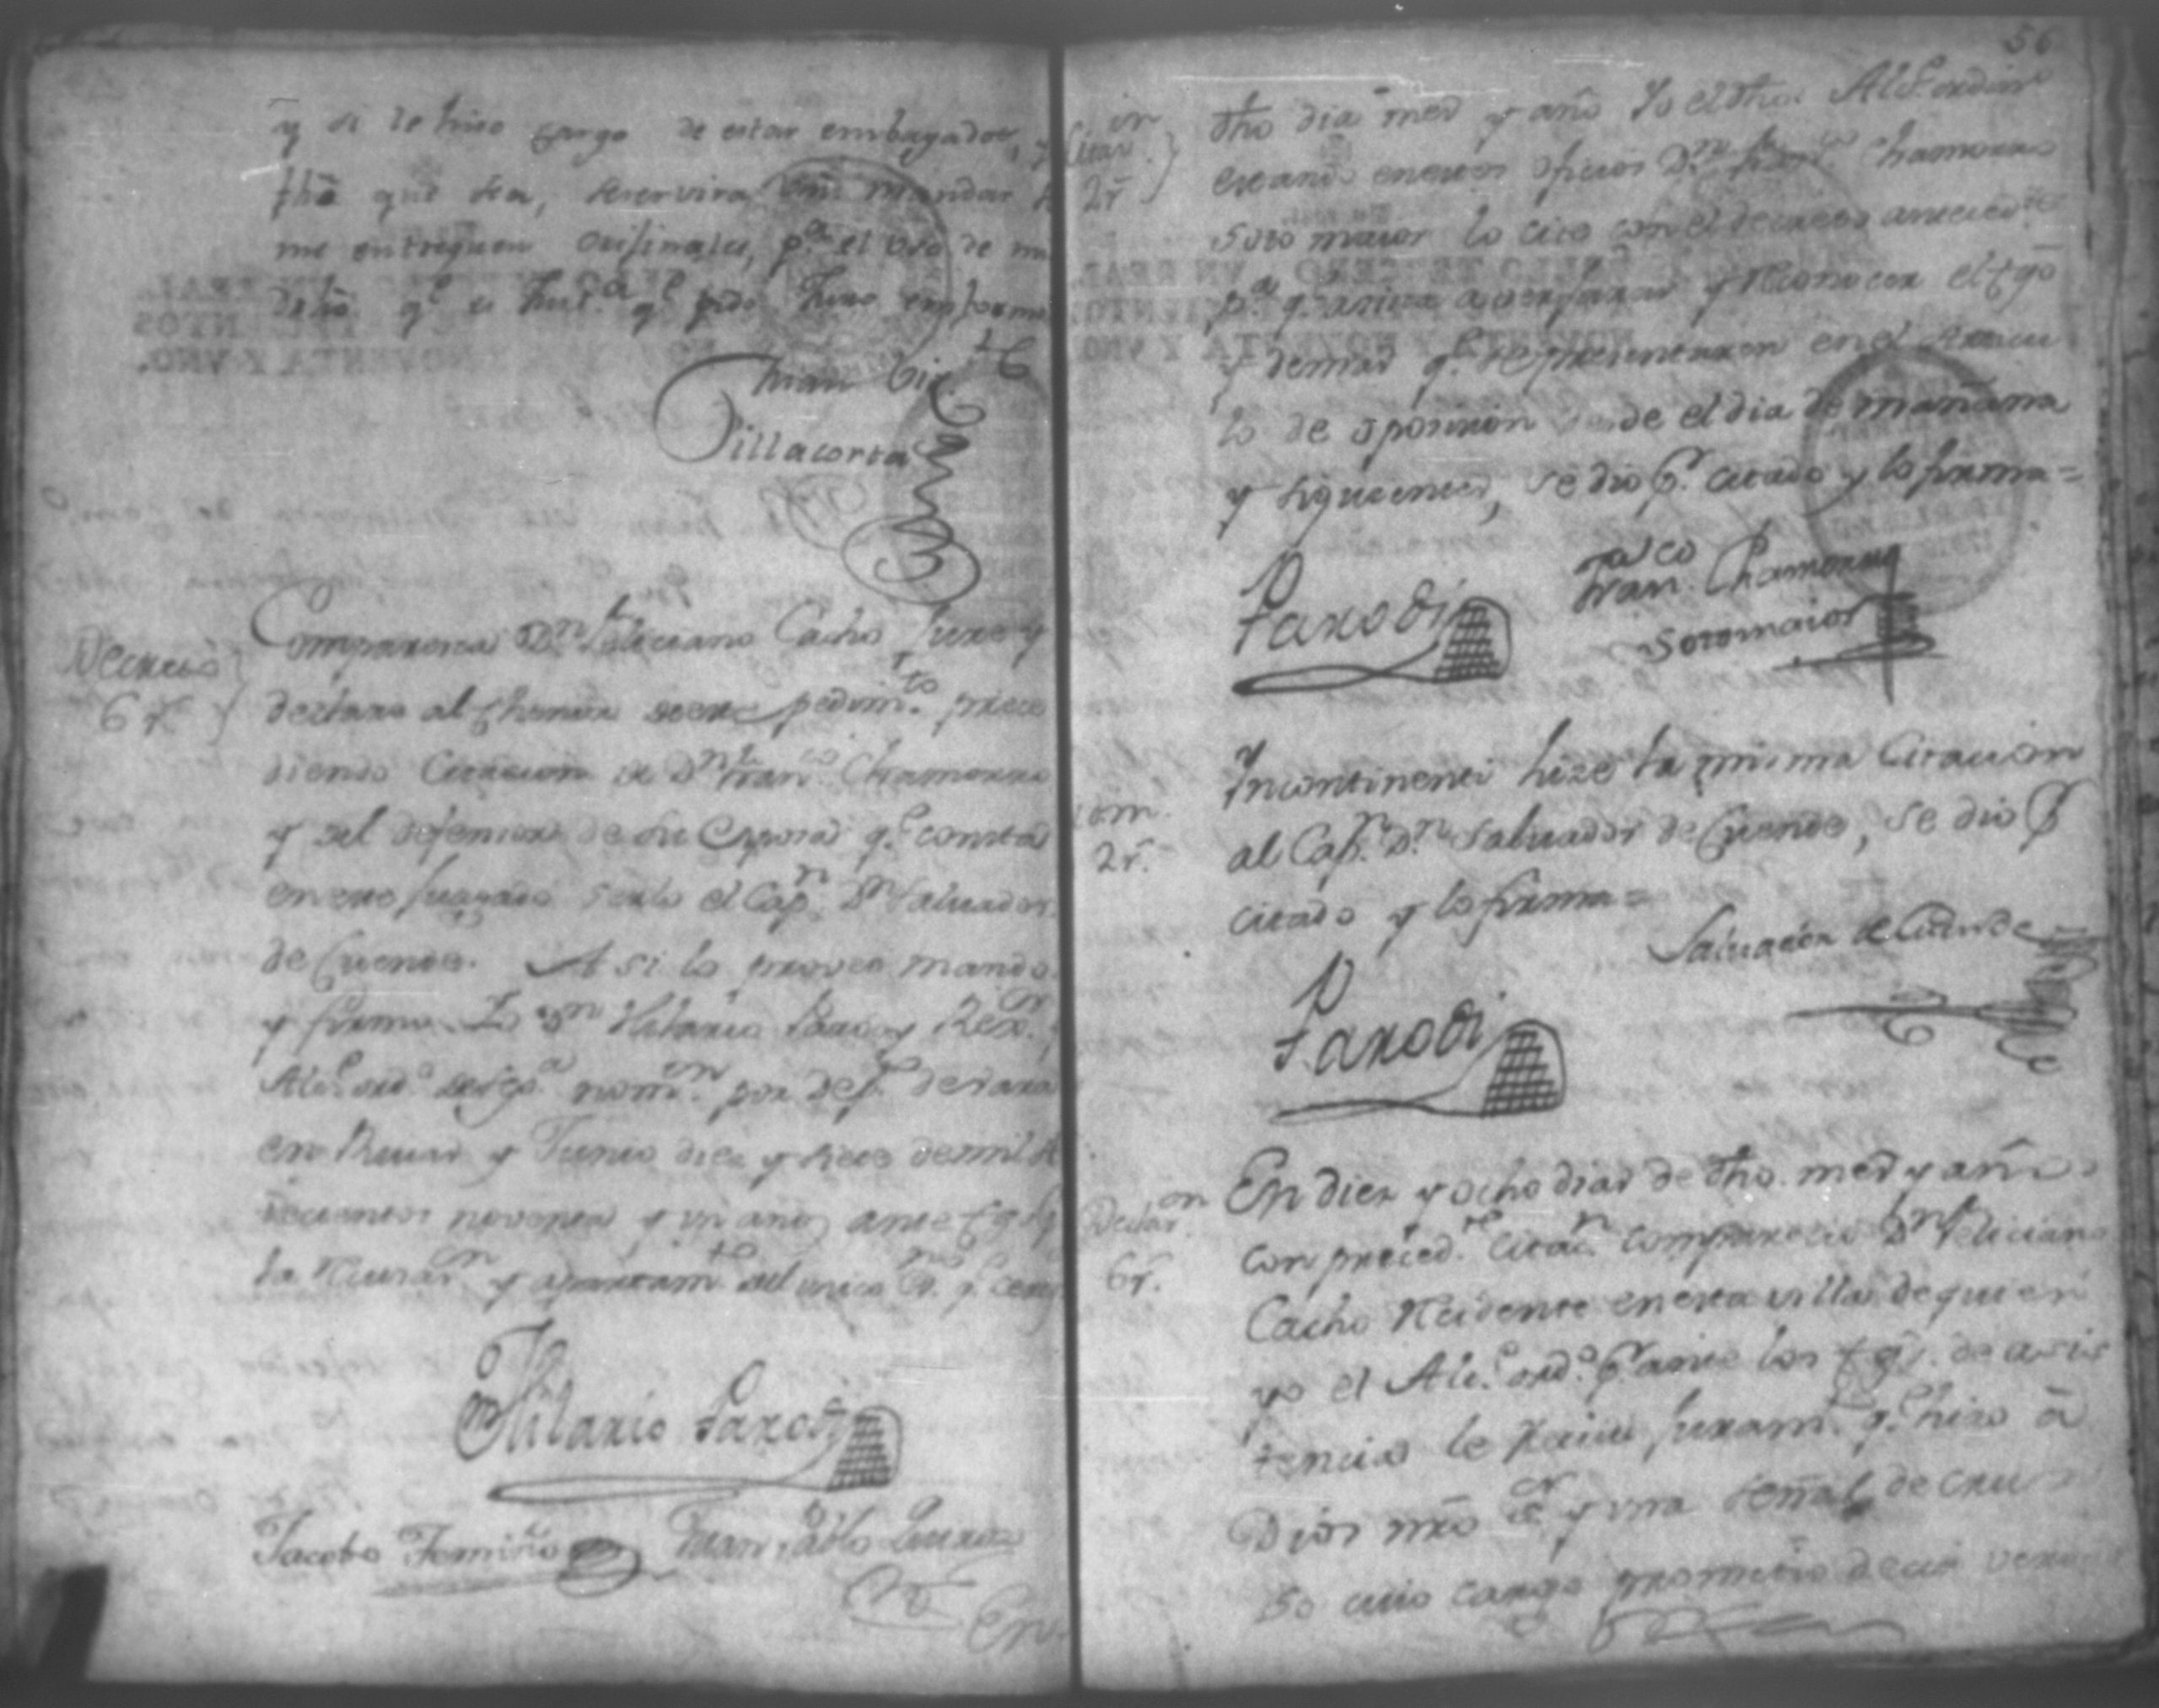 y si se hizo cargo de estar embargados, y
fho que sea, se servira Vm mandar se
me entreguen originales, p.a el uso de mi
dro q.e es Just.a q.e pido Juro en forma
Juan Vic.te
Villacorta
Decreto
6 r.
Comparesca D.n Feliciano Cacho Jure y
declare al thenor de este pedim.to prece
diendo Citacion de D.n Fran.co Chamorro
y del defensor de su Esposa q.e consta
en este Juzgado serlo el Cap.n D.n Salvador
de Cuende. Asi lo proveo mando
y firmo Yo D.n Hilario Parody Rex.or
Alc.e ord.o de seg.a nom.on por dep.to de vara
en Rivas y Junio diez y siete de mil se
tecientos noventa y un años ante tgs. p.r
la Recusas.n y apartam.to del unico
D.n Hilario Parodi
Jacobo Temiño Juan Pablo
En
56
Citas.on
2 r.
dho dia mes y año Yo el dho. Alc.e ordin.o
estando en estos oficios D.n Fran.co Chamorro
Soto maior lo cite con el decreto antecedte
p.a q.e asista a ver jurar y reconocer el tgo
y demas q.e se presentaren en el Articu
lo de oposicion desde el dia de mañana
y siguientes, se dio p.r citado y lo firma=
Parodi
Fran.co Chamorro
Sotomaior
otra.
2 r.
Yncontinenti hize la misma Citacion
al Cap.n D.n Salvador de Cuende, se dio p.r
citado y lo firma=
Salvador de Cuende
Parodi
Declar.on
6 r.
En diez y ocho dias de dho. mes y año
con preced.te citac.n comparecio D.n Feliciano
Cacho Recidente en esta villa de quien
yo el Alc.e ord.o p.r ante los tgs. de asis
tencia le recivi Juram.to q.e hizo a
Dios nro S.r y una señal de cruz
so cuio cargo prometio decir verdad